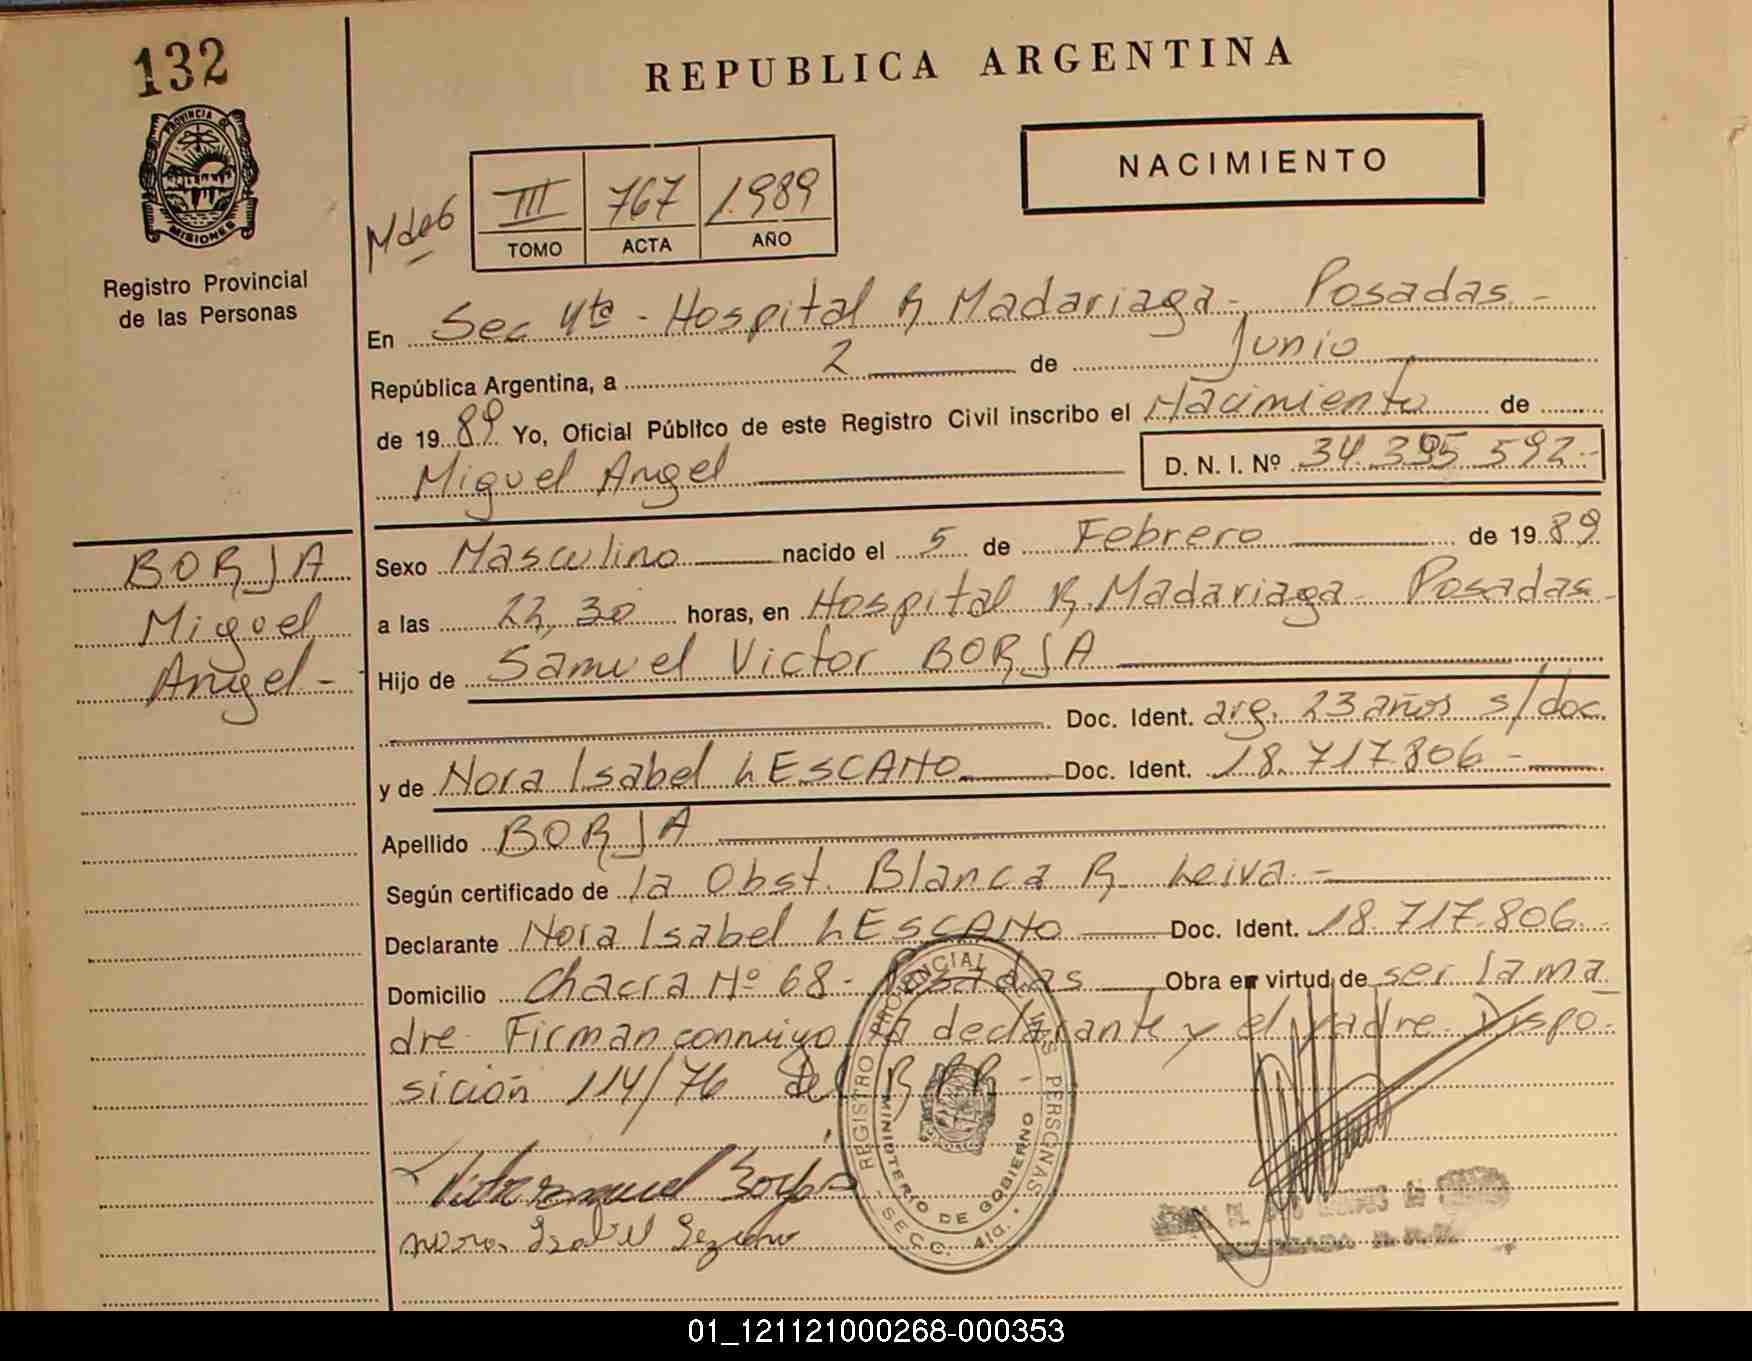 132
REPUBLICA ARGENTINA
PROVINCIA DE
MISIONES
NACIMIENTO
III 767 1.989
TOMO ACTA AÑO
Registro Provincial
de las Personas
En Sec 4ta - Hospital R Madariaga - Posadas -
República Argentina, a 2 de Junio
de 19 89 Yo, Oficial Público de este Registro Civil inscribo el Nacimiento de
Miguel Angel D. N. I. Nº 34.395.592-
BORJA
Miguel
Angel -
Sexo Masculino nacido el 5 de Febrero de 19 89
a las 22,30 horas, en Hospital R. Madariaga - Posadas -
Hijo de Samuel Victor BORJA
Doc. Ident. arg. 23 años s/doc.
y de Nora Isabel LESCANO Doc. Ident. 18.717.806 -
Apellido BORJA
Según certificado de la Obst. Blanca R. Leiva. -
Declarante Nora Isabel LESCANO Doc. Ident. 18.717.806 -
Domicilio Chacra Nº 68 - Posadas Obra en virtud de ser la ma
dre. Firman conmigo la declarante y el padre. Dispo-
sición 114/76 del R P P
REGISTRO PROVINCIAL DE LAS PERSONAS
MINISTERIO DE GOBIERNO
SECC. 4ta.
01_121121000268-000353